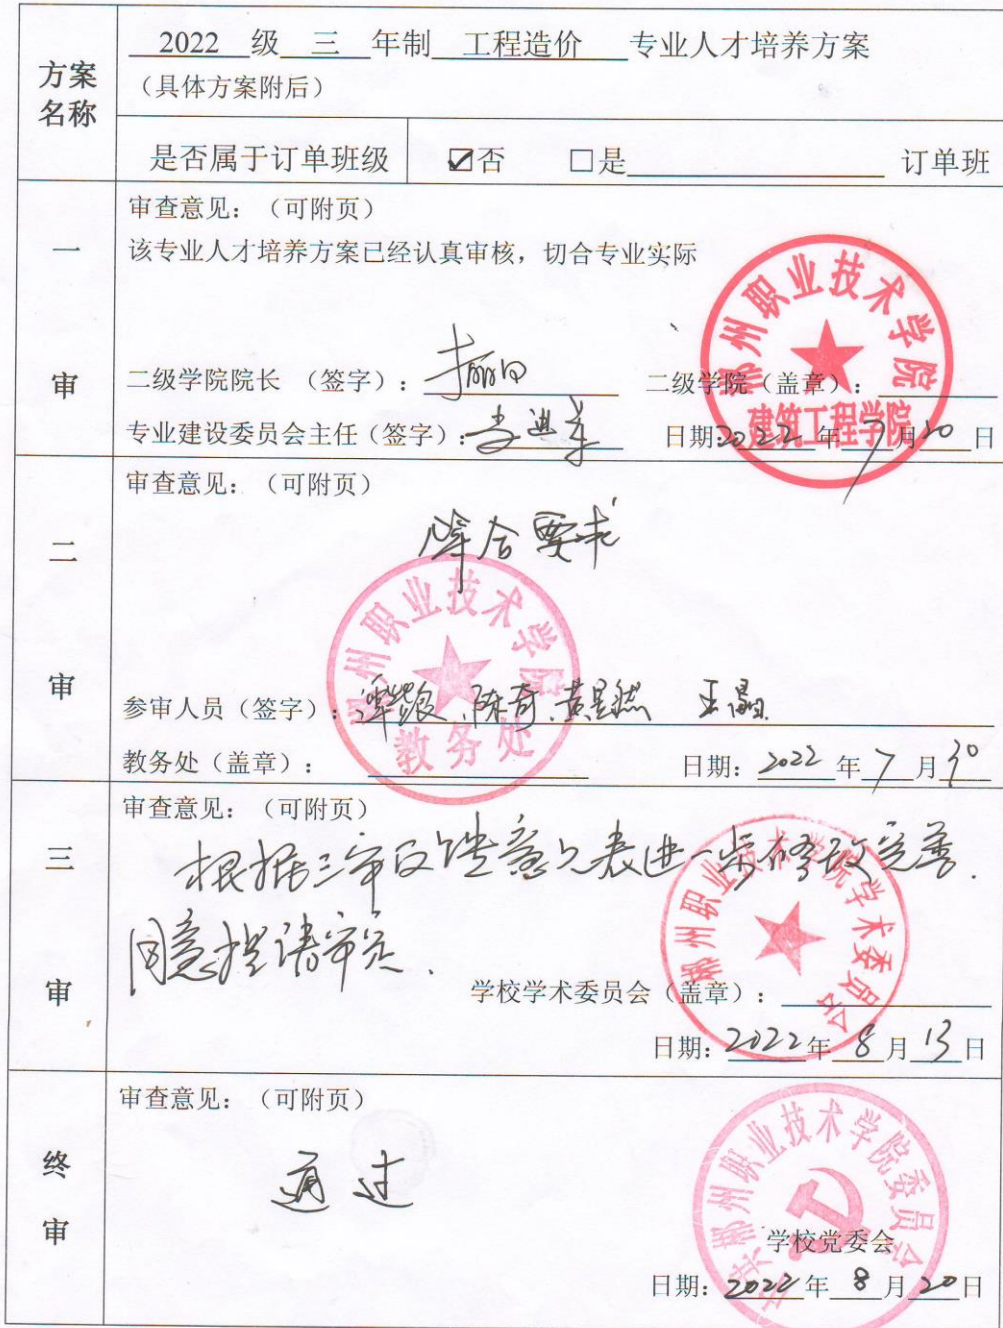 方案名称
2022 级 三 年制 工程造价 专业人才培养方案
（具体方案附后）
是否属于订单班级 ☑否 □是 订单班
一审
审查意见：（可附页）
该专业人才培养方案已经认真审核，切合专业实际
二级学院院长 （签字）： 二级学院（盖章）：
专业建设委员会主任（签字）： 日期：2022 年 7 月 20 日
郴州职业技术学院
建筑工程学院
二审
审查意见：（可附页）
符合要求
参审人员（签字）： 陈奇
教务处（盖章）： 日期：2022 年 7 月 30
郴州职业技术学院
教务处
三审
审查意见：（可附页）
根据三审反馈意见表进一步修改完善.
同意提请审定.
学校学术委员会（盖章）：
日期：2022 年 8 月 13 日
郴州职业技术学院学术委员会
终审
审查意见：（可附页）
通过
学校党委会
日期：2022 年 8 月 20 日
中共郴州职业技术学院委员会